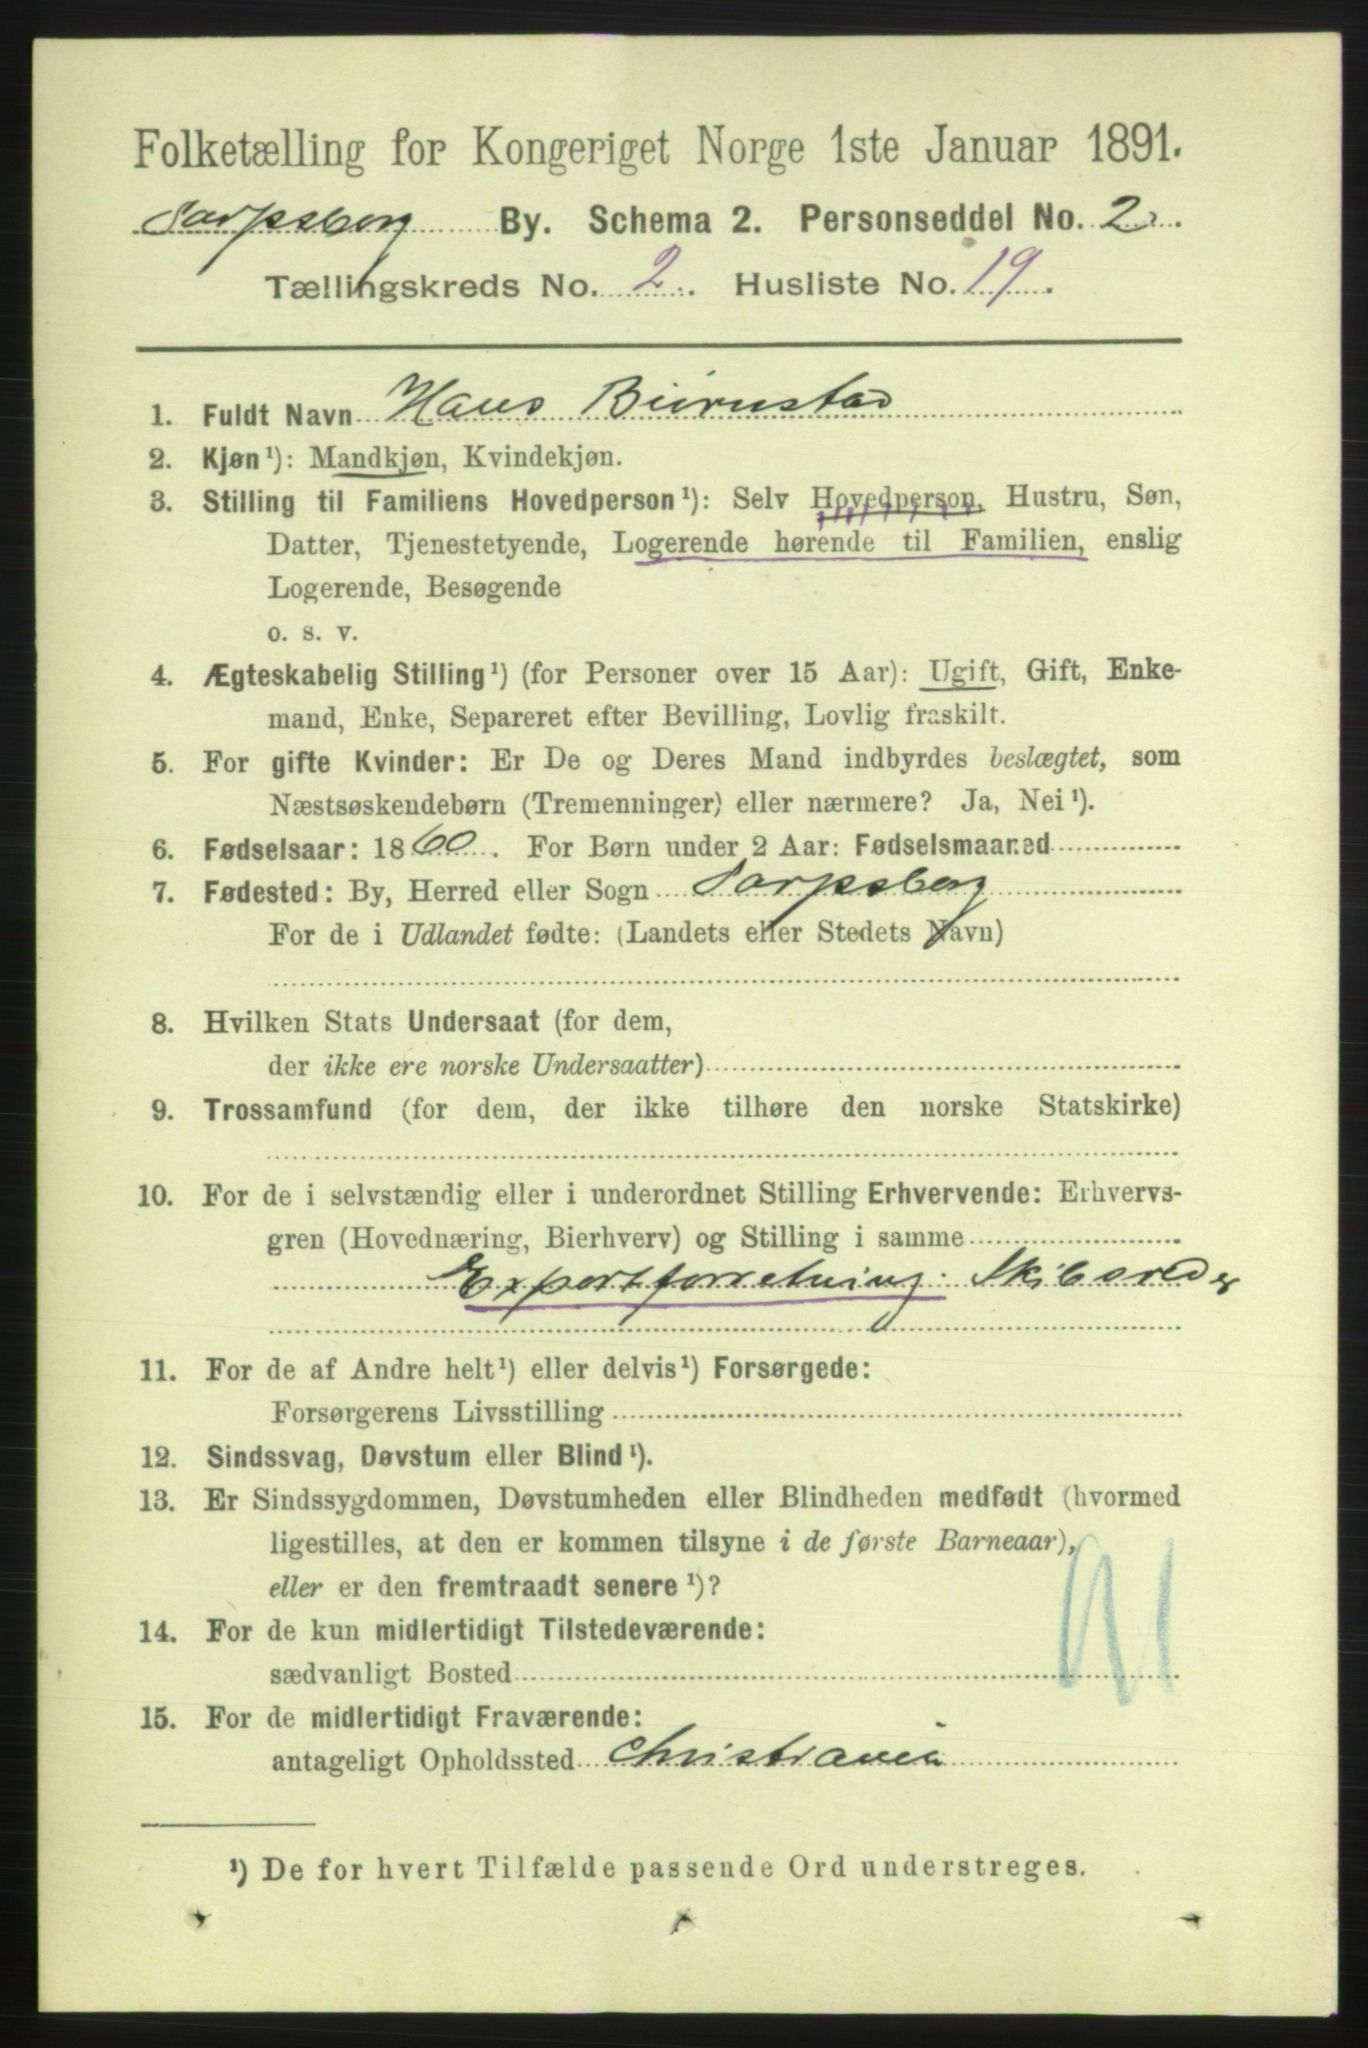 Folketælling for Kongeriget Norge 1ste Januar 1891.
Sarpsborg By. Schema 2. Personseddel No. 2.
Tællingskreds No. 2. Husliste No. 19.
1. Fuldt Navn Hans Biørnstad
2. Kjøn¹): Mandkjøn, Kvindekjøn.
3. Stilling til Familiens Hovedperson¹): Selv Hovedperson, Hustru, Søn,
Datter, Tjenestetyende, Logerende hørende til Familien, enslig
Logerende, Besøgende
o. s. v.
4. Ægteskabelig Stilling¹) (for Personer over 15 Aar): Ugift, Gift, Enke-
mand, Enke, Separeret efter Bevilling, Lovlig fraskilt.
5. For gifte Kvinder: Er De og Deres Mand indbyrdes beslægtet, som
Næstsøskendebørn (Tremenninger) eller nærmere? Ja, Nei¹).
6. Fødselsaar: 1860. For Børn under 2 Aar: Fødselsmaaned
7. Fødested: By, Herred eller Sogn Sarpsborg
For de i Udlandet fødte: (Landets eller Stedets Navn)
8. Hvilken Stats Undersaat (for dem,
der ikke ere norske Undersaatter)
9. Trossamfund (for dem, der ikke tilhøre den norske Statskirke)
10. For de i selvstændig eller i underordnet Stilling Erhvervende: Erhvervs-
gren (Hovednæring, Bierhverv) og Stilling i samme
Exportforretning. Skibsreder
11. For de af Andre helt¹) eller delvis¹) Forsørgede:
Forsørgerens Livsstilling
12. Sindssvag, Døvstum eller Blind¹).
13. Er Sindssygdommen, Døvstumheden eller Blindheden medfødt (hvormed
ligestilles, at den er kommen tilsyne i de første Barneaar),
eller er den fremtraadt senere¹)?
14. For de kun midlertidigt Tilstedeværende:
sædvanligt Bosted
15. For de midlertidigt Fraværende:
antageligt Opholdssted Christiania
¹) De for hvert Tilfælde passende Ord understreges.